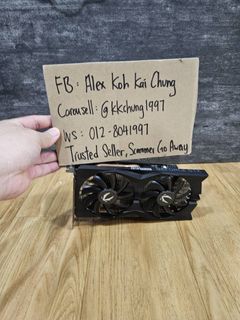 FB: Alex Koh Kai Chung
Carousell: @kkchung1997
WS: 012-8041997
Trusted Seller, Scammer Go Away